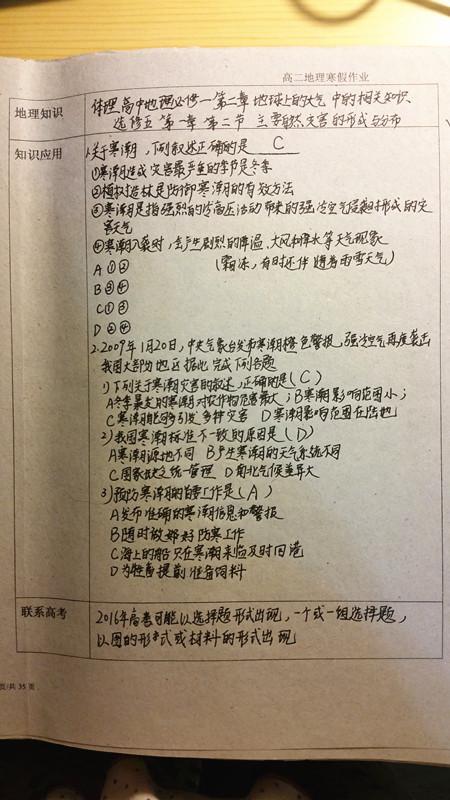 高二地理寒假作业
地理知识
梳理高中地理必修一第二章 地球上的大气 中的相关知识
选修五 第一章 第二节 主要自然灾害的形成与分布
知识应用
1.关于寒潮,下列叙述正确的是 C
①寒潮造成灾害最严重的季节是冬季
②植树造林是防御寒潮的有效方法
③寒潮是指强烈的冷高压活动带来的强冷空气侵袭时形成的灾
害天气
④寒潮入侵时,会产生剧烈的降温、大风和降水等天气现象
A ①② (霜冻,有时还伴随着雨雪天气)
B ③④
C ①③
D ②④
2.2009年1月20日,中央气象台发布寒潮橙色警报,强冷空气再度袭击
我国大部分地区 据此完成下列各题
1)下列关于寒潮灾害的叙述,正确的是(C)
A冬季暴发的寒潮对农作物危害最大;B寒潮影响范围小;
C寒潮能够引发多种灾害 D寒潮影响范围在陆地
2)我国寒潮标准不一致的原因是(D)
A寒潮源地不同 B产生寒潮的天气系统不同
C国家缺乏统一管理 D南北气候差异大
3)预防寒潮的首要工作是(A)
A发布准确的寒潮信息和警报
B随时做好防寒工作
C海上的船只在寒潮来临及时回港
D为牲畜提前准备饲料
联系高考
2016年高考可能以选择题形式出现,一个或一组选择题,
以图的形式或材料的形式出现
页/共 35 页